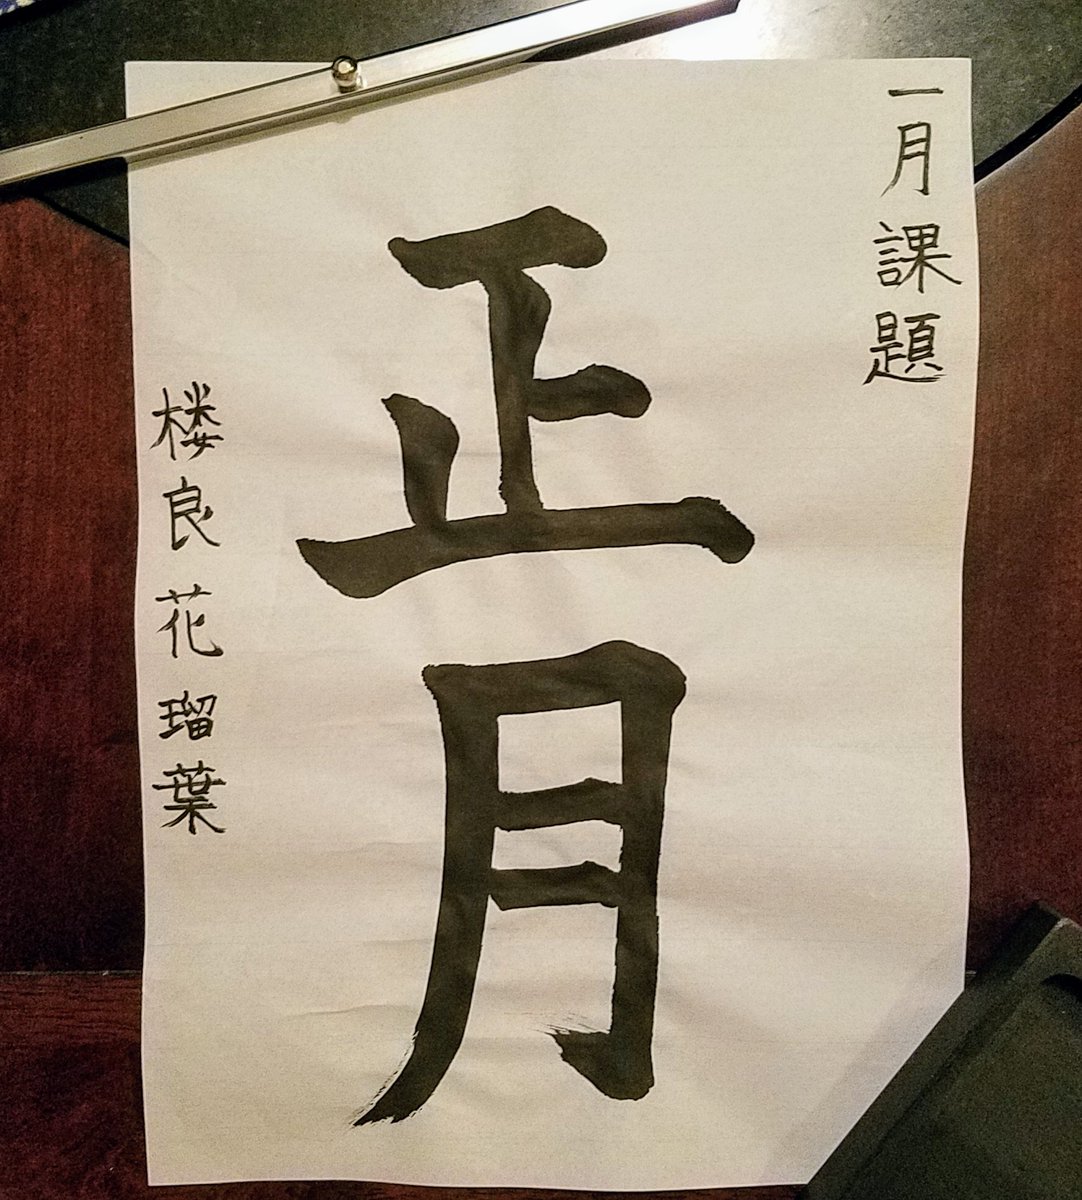 一月課題
正月
楼良花瑠葉